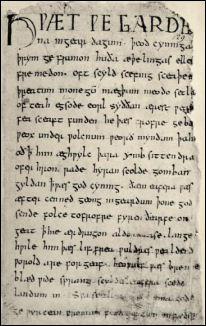 HǷÆT ǷE GARDE
na ingear dagum þeod cyninga
þrym ge frunon huða æþelingas elle
fremedon. oft scyld scefing sceaþe
þreatum monegū mægþum meodo setla
of teah egsode eorl syððan ærest ƿear
fea sceaft funden he þæs frofre geba
ƿeox under ƿolcnum ƿeorð myndum þah
oð ꝥ him æghƿylc þara ymb sittendra
ofer hron rade hyran scolde gomban
gyldan ꝥ ƿæs god cyning. ðæm eafera ƿæs
æfter cenned geong ingeardum þone god
sende folce tofrofre fyren ðearfe on
geat ꝥ hie ær drugon aldor ase. lange
hƿile him þæs lif frea ƿuldres ƿealdend
ƿorold are for geaf. beoƿulf ƿæs breme
blæd ƿide sprang scyldes eafera scede
landum in. Sƿa sceal uma gode
ge ƿyrcean fromum feoh giftum